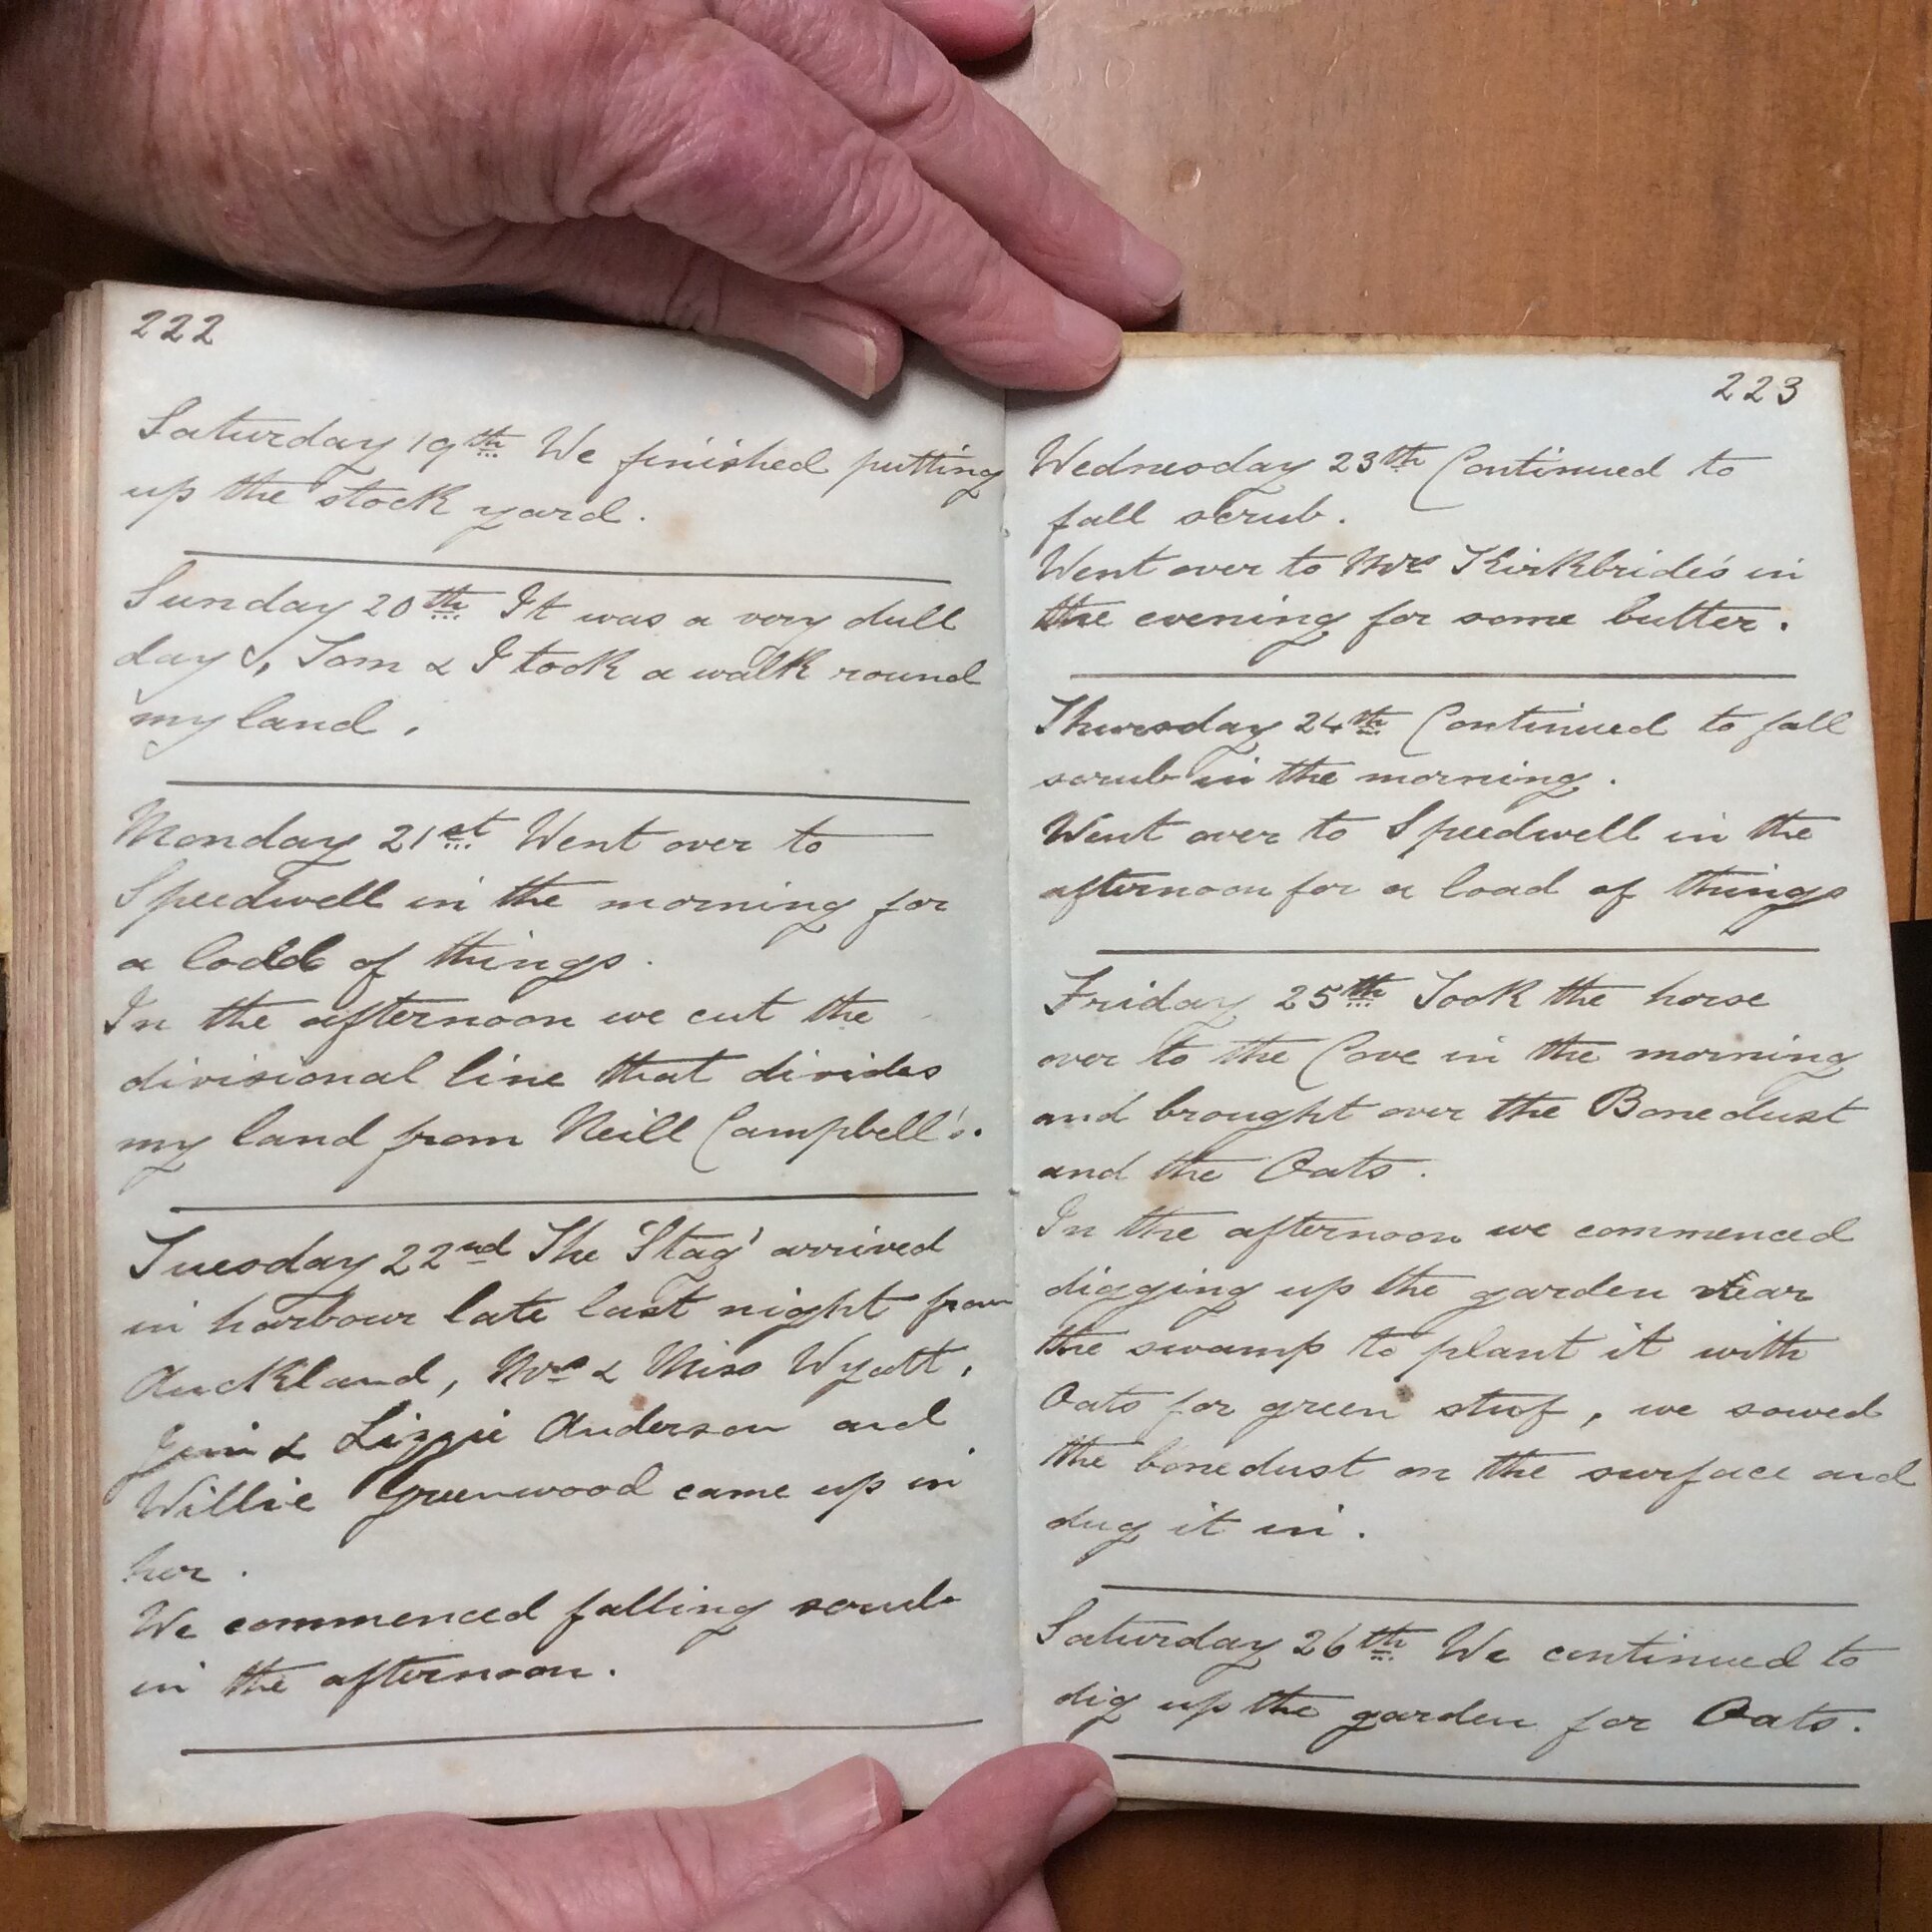 222
Saturday 19th We finished putting
up the stock yard.
Sunday 20th It was a very dull
day, Tom & I took a walk round
my land.
Monday 21st Went over to
Speedwell in the morning for
a load of things.
In the afternoon we cut the
divisional line that divides
my land from Neill Campbell's.
Tuesday 22nd The 'Stag' arrived
in harbour late last night from
Auckland, Mrs & Miss Wyatt,
& Lizzie Anderson and
Willie Greenwood came up in
her.
We commenced falling scrub
in the afternoon.
223
Wednesday 23th Continued to
fall scrub.
Went over to Mrs Kirkbride's in
the evening for some butter.
Thursday 24th Continued to fall
scrub in the morning.
Went over to Speedwell in the
afternoon for a load of things
Friday 25th Took the horse
over to the Cove in the morning
and brought over the Bonedust
and the Oats.
In the afternoon we commenced
digging up the garden near
the swamp to plant it with
Oats for green stuf, we sowed
the bonedust on the surface and
dug it in.
Saturday 26th We continued to
dig up the garden for Oats.